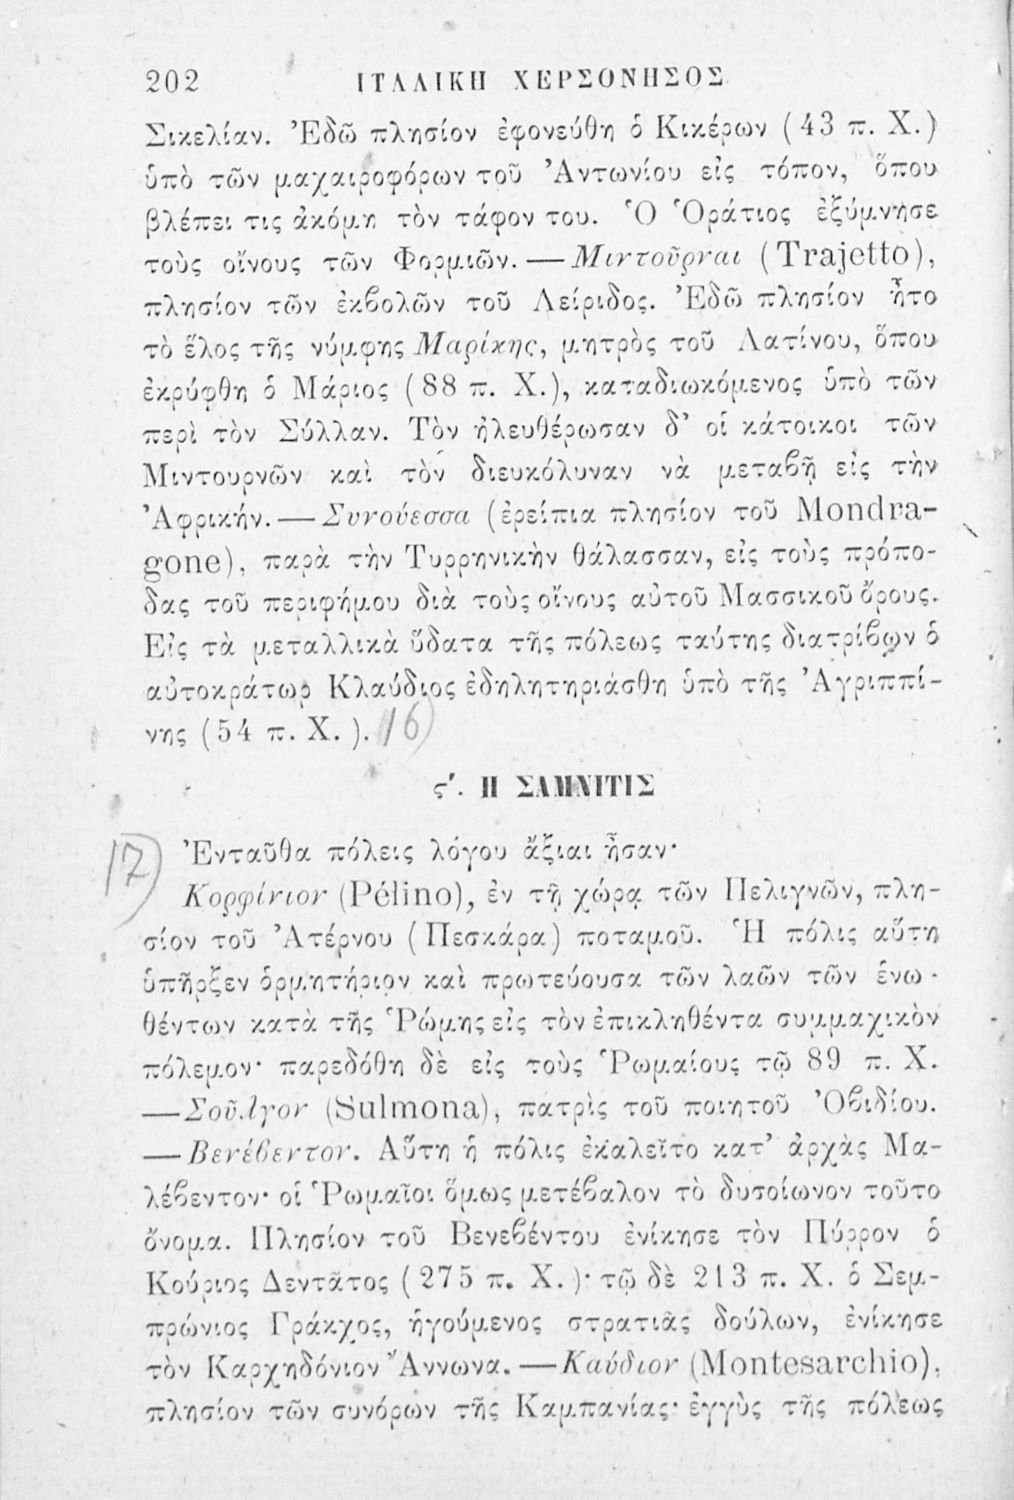 202 ΙΤΑΛΙΚΗ ΧΕΡΣΟΝΗΣΟΣ
Σικελίαν. Ἐδῶ πλησίον ἐφονεύθη ὁ Κικέρων (43 π. Χ.)
ὑπὸ τῶν μαχαιροφόρων τοῦ Ἀντωνίου εἰς τόπον, ὅπου
βλέπει τις ἀκόμη τὸν τάφον του. Ὁ Ὁράτιος ἐξύμνησε
τοὺς οἴνους τῶν Φορμιῶν. — Μιντοῦρναι (Trajetto),
πλησίον τῶν ἐκβολῶν τοῦ Λείριδος. Ἐδῶ πλησίον ἦτο
τὸ ἕλος τῆς νύμφης Μαρίκης, μητρὸς τοῦ Λατίνου, ὅπου
ἐκρύφθη ὁ Μάριος (88 π. Χ.), καταδιωκόμενος ὑπὸ τῶν
περὶ τὸν Σύλλαν. Τὸν ἠλευθέρωσαν δ' οἱ κάτοικοι τῶν
Μιντουρνῶν καὶ τὸν διευκόλυναν νὰ μεταβῇ εἰς τὴν
Ἀφρικήν. — Συνούεσσα (ἐρείπια πλησίον τοῦ Mondra-
gone), παρὰ τὴν Τυρρηνικὴν θάλασσαν, εἰς τοὺς πρόπο-
δας τοῦ περιφήμου διὰ τοὺς οἴνους αὐτοῦ Μασσικοῦ ὄρους.
Εἰς τὰ μεταλλικὰ ὕδατα τῆς πόλεως ταύτης διατρίβων ὁ
αὐτοκράτωρ Κλαύδιος ἐδηλητηριάσθη ὑπὸ τῆς Ἀγριππί-
νης (54 π. Χ.). 16)
ς'. Η ΣΑΜΝΙΤΙΣ
17) Ἐνταῦθα πόλεις λόγου ἄξιαι ἦσαν·
Κορφίνιον (Pélino), ἐν τῇ χώρᾳ τῶν Πελιγνῶν, πλη-
σίον τοῦ Ἀτέρνου (Πεσκάρα) ποταμοῦ. Ἡ πόλις αὕτη
ὑπῆρξεν ὁρμητήριον καὶ πρωτεύουσα τῶν λαῶν τῶν ἑνω-
θέντων κατὰ τῆς Ῥώμης εἰς τὸν ἐπικληθέντα συμμαχικὸν
πόλεμον· παρεδόθη δὲ εἰς τοὺς Ῥωμαίους τῷ 89 π. Χ.
— Σοῦλγον (Sulmona), πατρὶς τοῦ ποιητοῦ Ὀβιδίου.
— Βενέβεντον. Αὕτη ἡ πόλις ἐκαλεῖτο κατ' ἀρχὰς Μα-
λέβεντον· οἱ Ῥωμαῖοι ὅμως μετέβαλον τὸ δυσοίωνον τοῦτο
ὄνομα. Πλησίον τοῦ Βενεβέντου ἐνίκησε τὸν Πύρρον ὁ
Κούριος Δεντᾶτος (275 π. Χ.)· τῷ δὲ 213 π. Χ. ὁ Σεμ-
πρώνιος Γράκχος, ἡγούμενος στρατιᾶς δούλων, ἐνίκησε
τὸν Καρχηδόνιον Ἄννωνα. — Καύδιον (Montesarchio),
πλησίον τῶν συνόρων τῆς Καμπανίας· ἐγγὺς τῆς πόλεως